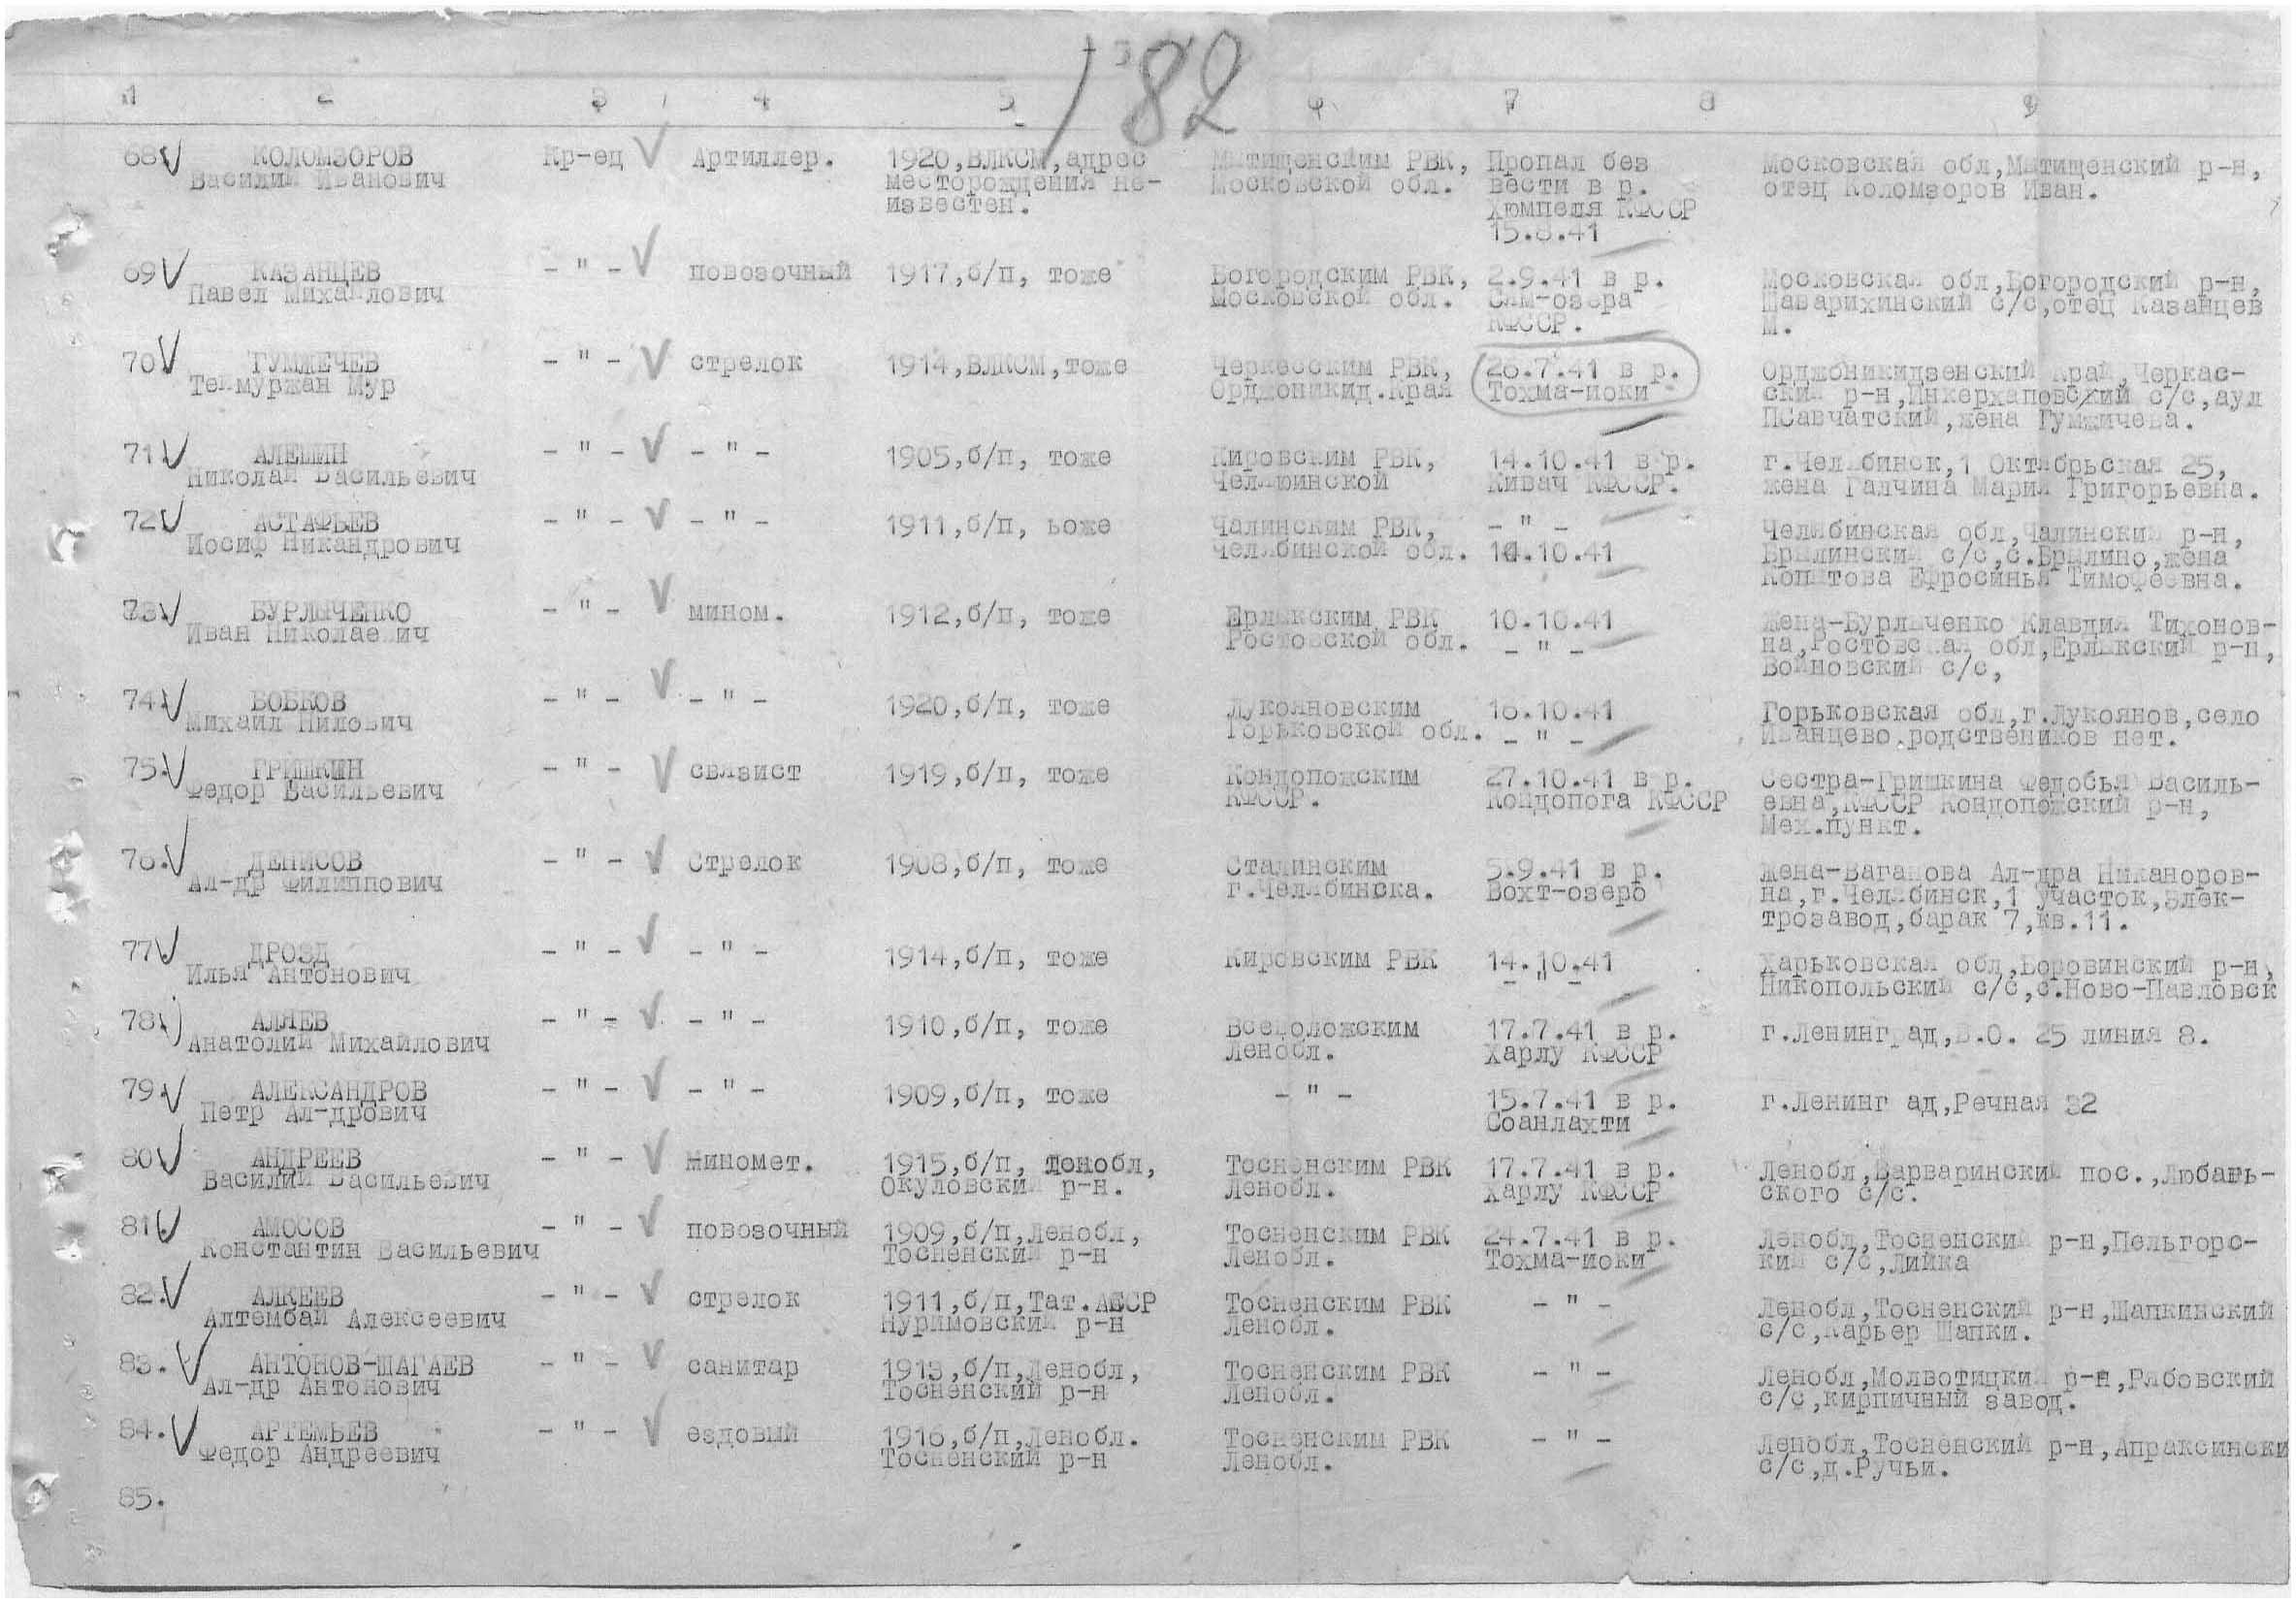 182
1 2 3 4 5 6 7 8 9
68. КОЛОМЗОРОВ Кр-ец Артиллер. 1920,ВЛКСМ,адрес Мытищенским РВК, Пропал без Московская обл,Мытищенский р-н,
Василий Иванович месторождения не- Московской обл. вести в р. отец Коломзоров Иван.
известен. Хюмпеля КФССР
15.8.41
69 КАЗАНЦЕВ - " - повозочный 1917,б/п, тоже Богородским РВК, 2.9.41 в р. Московская обл,Богородский р-н,
Павел Михайлович Московской обл. Сям-озера Шаварихинский с/с,отец Казанцев
КФССР. М.
70 ГУМЖЕЧЕВ - " - стрелок 1914,ВЛКСМ,тоже Черкесским РВК, 26.7.41 в р. Орджоникидзенский край,Черкас-
Теймуржан Мур Орджоникид.Края Тохма-иоки ский р-н,Инжерхаповский с/с,аул
Псавчатский,жена Гумжичева.
71. АЛЕШИН - " - - " - 1905,б/п, тоже Кировским РВК, 14.10.41 в р. г.Челябинск,1 Октябрьская 25,
Николай Васильевич Челябинской Кивач КФССР. жена Галчина Мария Григорьевна.
72. АСТАФЬЕВ - " - - " - 1911,б/п, ьоже Чалинским РВК, - " - Челябинская обл,Чалинский р-н,
Иосиф Никандрович Челябинской обл. 10.10.41 Брылинский с/с,с.Брылино,жена
Копытова Ефросинья Тимофеевна.
73. БУРЛЫЧЕНКО - " - мином. 1912,б/п, тоже Ерлыкским РВК 10.10.41 Жена-Бурлыченко Клавдия Тихонов-
Иван Николаевич Ростовской обл. - " - на,Ростовская обл,Ерлыкский р-н,
Войновский с/с,
74. БОБКОВ - " - - " - 1920,б/п, тоже Лукояновским 16.10.41 Горьковская обл,г.Лукоянов,село
Михаил Нилович Горьковской обл. - " - Иванцево.родствеников нет.
75. ГРИШКИН - " - связист 1919,б/п, тоже Кондопожским 27.10.41 в р. Сестра-Гришкина Федобья Василь-
Федор Васильевич КФССР. Кондопога КФССР евна,КФССР Кондопожский р-н,
Мех.пункт.
76. ДЕНИСОВ - " - Стрелок 1908,б/п, тоже Сталинским 5.9.41 в р. Жена-Ваганова Ал-дра Никаноров-
Ал-др Филиппович г.Челябинска. Вохт-озеро на,г.Челябинск,1 Участок,Элек-
трозавод,барак 7,кв.11.
77. ДРОЗД - " - - " - 1914,б/п, тоже Кировским РВК 14.10.41 Харьковская обл,Боровинский р-н,
Илья Антонович - " - Никопольский с/с,с.Ново-Павловск
78. АЛЯЕВ - " - - " - 1910,б/п, тоже Всеволожским 17.7.41 в р. г.Ленинград,В.О. 25 линия 8.
Анатолий Михайлович Ленобл. Харлу КФССР
79. АЛЕКСАНДРОВ - " - - " - 1909,б/п, тоже - " - 15.7.41 в р. г.Ленинг ад,Речная 32
Петр Ал-дрович Соанлахти
80. АНДРЕЕВ - " - миномет. 1915,б/п, Ленобл, Тосненским РВК 17.7.41 в р. Ленобл,Варваринский пос.,Любань-
Василий Васильевич Окуловский р-н. Ленобл. Харлу КФССР ского с/с.
81. АМОСОВ - " - повозочный 1909,б/п,Ленобл, Тосненским РВК 24.7.41 в р. Ленобл,Тосненский р-н,Пельгорс-
Константин Васильевич Тосненский р-н Ленобл. Тохма-иоки кий с/с,Лийка
82. АЛКЕЕВ - " - стрелок 1911,б/п,Тат.АССР Тосненским РВК - " - Ленобл,Тосненский р-н,Шапкинский
Алтембай Алексеевич Нуримовский р-н Ленобл. с/с,Карьер Шапки.
83. АНТОНОВ-ШАГАЕВ - " - санитар 1913,б/п,Ленобл, Тосненским РВК - " - Ленобл,Молвотицкий р-н,Рябовский
Ал-др Антонович Тосненский р-н Ленобл. с/с,кирпичный завод.
84. АРТЕМЬЕВ - " - ездовый 1916,б/п,Ленобл. Тосненским РВК - " - Ленобл,Тосненский р-н,Апраксински
Федор Андреевич Тосненский р-н Ленобл. с/с,д.Ручьи.
85.